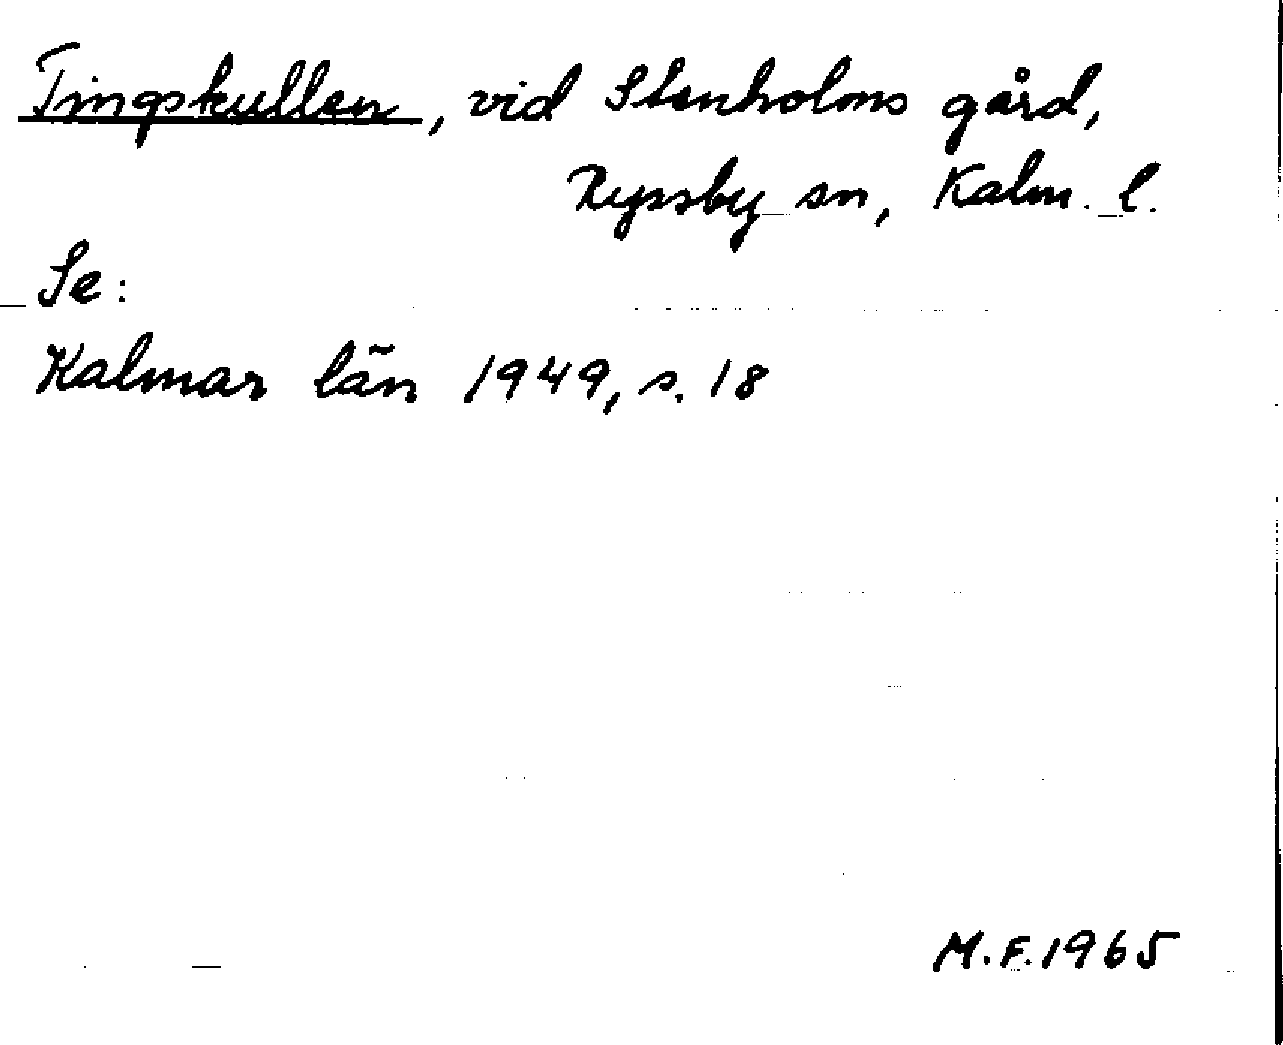 Tingskullen, vid Stenholms gård,
Ryssby sn, Kalm. l.
Se:
Kalmar län 1949, s. 18
M.F. 1965